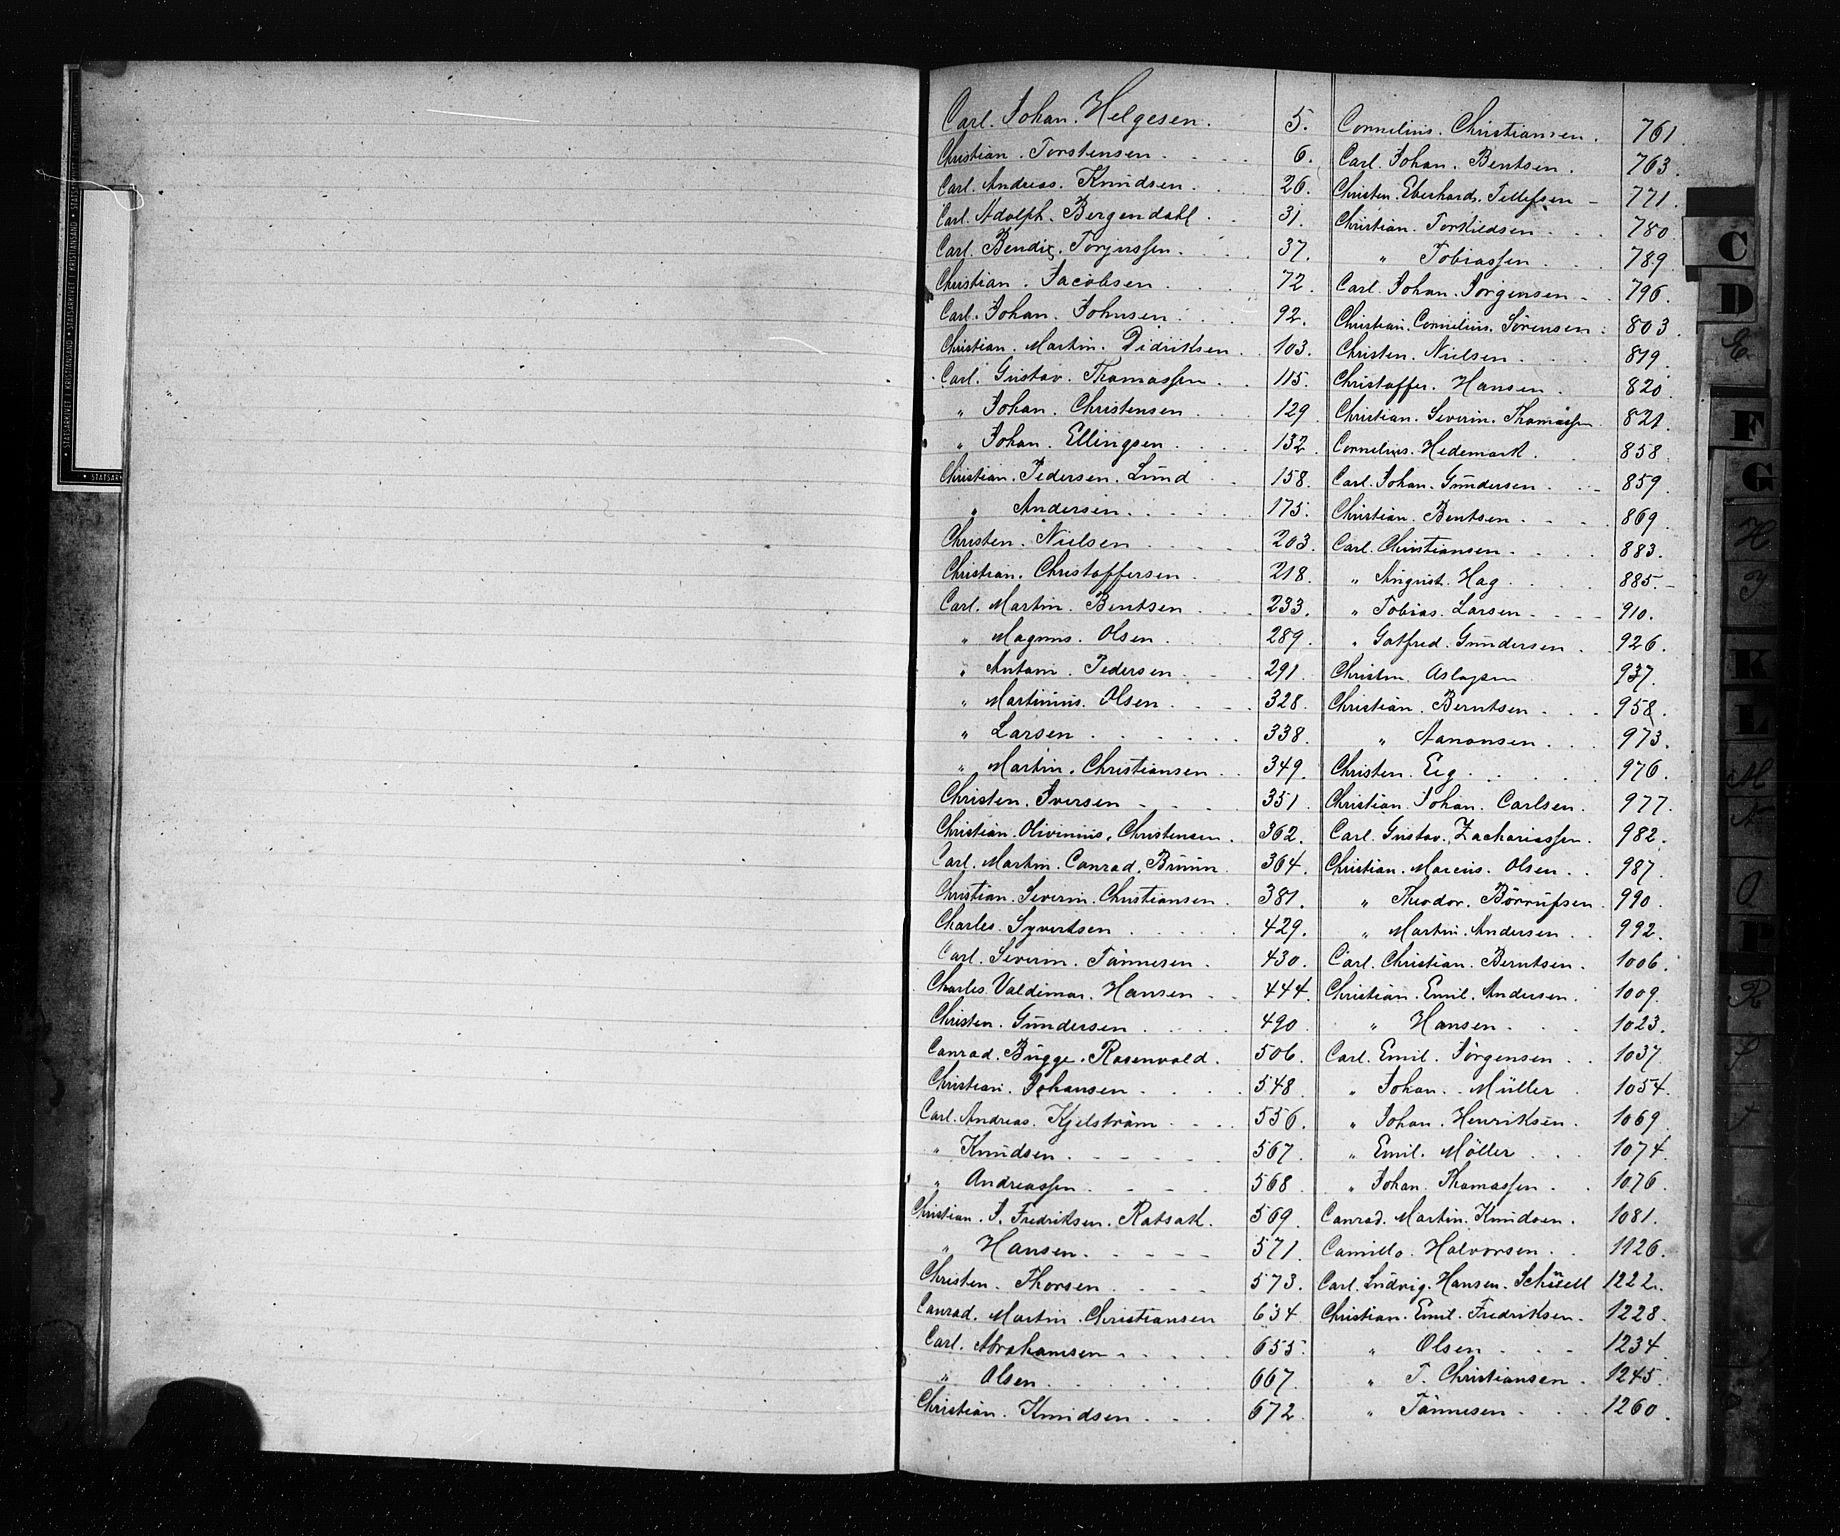 Carl. Johan. Helgesen. 5.
Christian. Torstensen. 6.
Carl. Andreas. Knudsen. 26.
Carl. Adolph. Bergendahl. 31.
Carl. Bendix. Torjussen. 37.
Christian. Jacobsen. 72.
Carl. Johan. Johnsen. 92.
Christian. Martin. Didriksen. 103.
Carl. Gustav. Thomassen. 115.
" Johan. Christensen. 129.
" Johan. Ellingsen. 132.
Christian. Pedersen. Lund 158.
" Andersen. 175.
Christen. Nielsen. 203.
Christian. Christoffersen. 218.
Carl. Martin. Bentsen. 233.
" Magnus. Olsen. 289.
" Antoni. Pedersen. 291.
" Martinius. Olsen. 328.
" Larsen. 338.
" Martin. Christiansen. 349.
Christen. Iversen. 351.
Christian. Olivinius. Christensen. 362.
Carl. Martin. Conrad. Bruun. 364.
Christian. Severin. Christiansen. 381.
Charles. Syvertsen. 429.
Carl. Severin. Tønnesen. 430.
Charles. Valdemar. Hansen. 444.
Christen. Gundersen. 490.
Conrad. Bugge. Rosenvold. 506.
Christian. Johansen. 548.
Carl. Andreas. Kjelstrøm. 556.
" Knudsen. 567.
" Andreassen. 568.
Christian. J. Fredriksen. Ratsak. 569.
" Hansen. 571.
Christen. Thorsen. 573.
Conrad. Martin. Christiansen 634.
Carl. Abrahamsen. 655.
" Olsen. 667.
Christian. Knudsen. 672.
Cornelius. Christiansen. 761.
Carl. Johan. Bentsen. 763.
Christen. Eberhard. Tellefsen 771.
Christian. Torkildsen. 780.
" Tobiassen. 789.
Carl. Johan. Jørgensen. 796.
Christian. Cornelius. Sørensen. 803.
Christen. Nielsen. 819.
Christoffer. Hansen. 820.
Christian. Severin. Thomassen. 821.
Cornelius. Hedemark. 858.
Carl. Johan. Gundersen. 859.
Christian. Bentsen. 869.
Carl. Christiansen. 883.
" August. Hag. 885.
" Tobias. Larsen. 910.
" Gotfred. Gundersen. 926.
Christen Aslagsen 937.
Christian. Berntsen. 958.
" Aanonsen. 973.
Christen. Eeg. 976.
Christian. Johan. Carlsen. 977.
Carl. Gustav. Zachariassen. 982.
Christian. Marcus. Olsen. 987.
" Theodor. Børrufsen. 990.
" Martin. Andersen. 992.
Carl. Christian. Berntsen. 1006.
Christian. Emil. Andersen. 1009.
" Hansen. 1023.
Carl. Emil. Jørgensen. 1037.
" Johan. Müller 1054.
" Johan. Henriksen. 1069.
" Emil. Møller 1074.
" Johan. Thomassen. 1076.
Conrad. Martin. Knudsen. 1081.
Camillo. Halvorsen. 1126.
Carl. Ludvig. Hansen. 1222.
Christian. Emil. Fredriksen. 1228.
" Olsen 1234.
" T. Christiansen. 1245.
" Tønnesen. 1260.
C
D
E
F
G
H
K
L
M
N
O
P
R
STATSARKIVET I KRISTIANSAND • STATSARKIVET I KRISTIANSAND